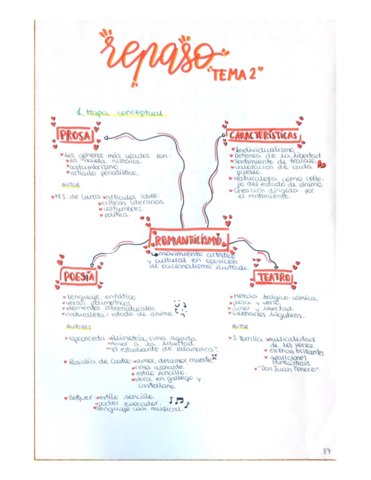 repaso
"TEMA 2"
1. Mapa conceptual.
PROSA
Los géneros más usados son:
la novela histórica
costumbrismo
artículo periodístico.
AUTOR
M.J. de Larra
artículos sobre:
críticas literarias
costumbres.
política.
CARACTERÍSTICAS
Individualismo
Defensa de la libertad
Sentimiento de
Valoración de cada
pueblo.
Naturaleza como refle-
jo del estado de ánimo.
dirigida por
el sentimiento.
ROMANTICISMO
movimiento artístico
y cultural en oposición
al racionalismo ilustrado.
POESÍA
Lenguaje enfático
versos polimétricos
elementos sobrenaturales
naturaleza: estado de ánimo
AUTORES
Espronceda
Polimetría, rima aguda
amor a la libertad
"el estudiante de Salamanca".
Rosalía de Castro
amor, desamor muerte
rima asonante.
estilo sencillo.
obra en gallego y
castellano.
Bécquer
estilo sencillo.
poder evocador.
lenguaje casi musical.
TEATRO
mezcla trágico-cómica,
prosa y verso.
amor y libertad
escenarios lúgubres.
AUTOR
J. Zorrilla
musicalidad
de los versos
escenas brillantes
apariciones
fantasmales
"Don Juan Tenorio".
37